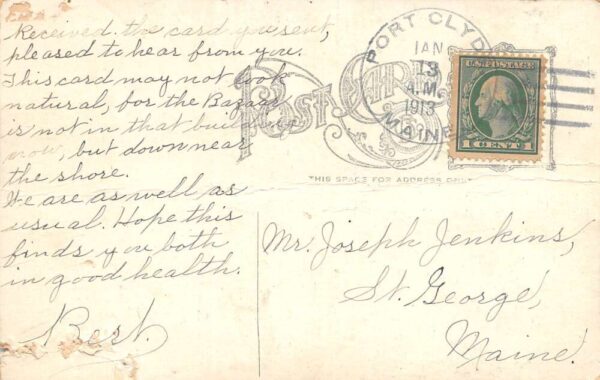 Received the card you sent,
pleased to hear from you.
This card may not look
natural, for the Bazaar
is not in that building
now, but down near
the shore.
We are as well as
usual. Hope this
finds you both
in good health.
Bert.
POST CARD
THIS SPACE FOR ADDRESS ONLY
PORT CLYDE
JAN
13
A.M.
1913
MAINE
U.S. POSTAGE
1 CENT 1
Mr. Joseph Jenkins,
St. George,
Maine.